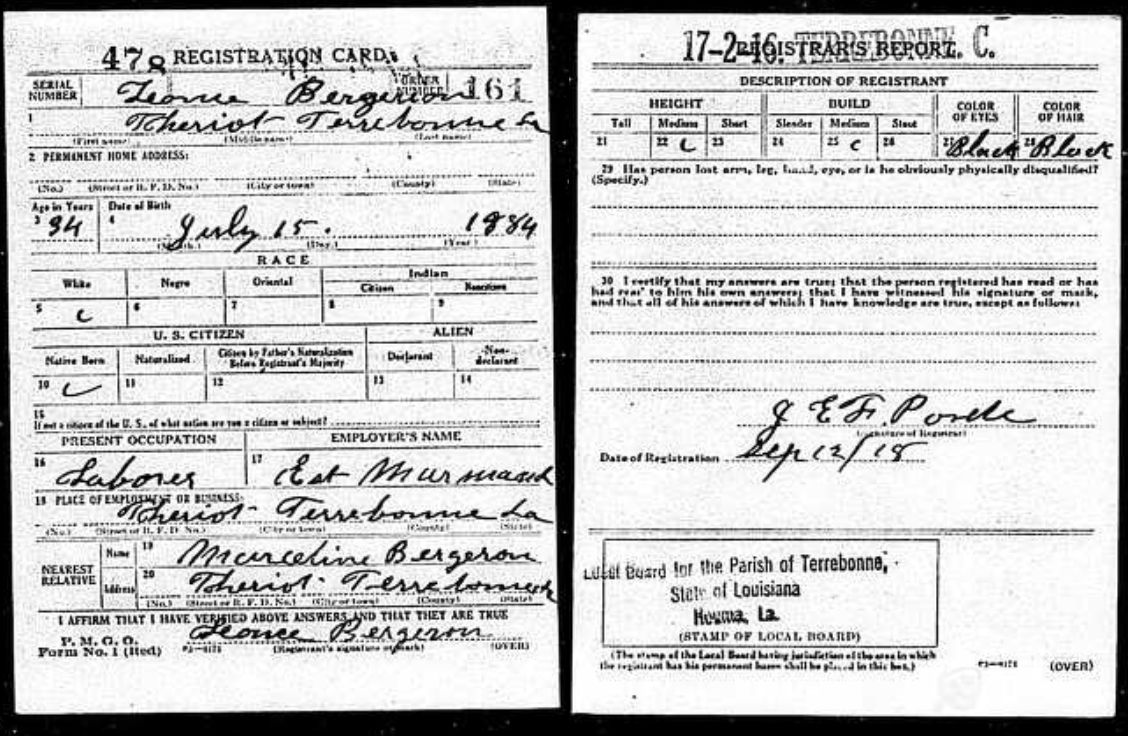 478 REGISTRATION CARD.
SERIAL NUMBER
ORDER NUMBER 161
Leonce Bergeron
1 Theriot Terrebonne La
(First name) (Middle name) (Last name)
2 PERMANENT HOME ADDRESS:
(No.) (Street or R. F. D. No.) (City or town) (County) (State)
Age in Years Date of Birth
3 34 4 July 15. 1884
(Month.) (Day.) (Year)
RACE
White Negro Oriental Indian
Citizen Noncitizen
5 6 7 8 9
U. S. CITIZEN ALIEN
Native Born Naturalized Citizen by Father's Naturalization Before Registrant's Majority Declarant Non-declarant
10 11 12 13 14
15
If not a citizen of the U. S., of what nation are you a citizen or subject?
PRESENT OCCUPATION EMPLOYER'S NAME
16 Laborer 17 Est
18 PLACE OF EMPLOYMENT OR BUSINESS:
Theriot Terrebonne La
(No.) (Street or R. F. D. No.) (City or town) (County) (State)
NEAREST RELATIVE
Name 19 Marceline Bergeron
Address 20 Theriot Terrebonne
(No.) (Street or R. F. D. No.) (City or town) (County) (State)
I AFFIRM THAT I HAVE VERIFIED ABOVE ANSWERS AND THAT THEY ARE TRUE
P. M. G. O.
Form No. 1 (Red)
Leonce Bergeron
(Registrant's signature or mark) (OVER)
17-2-16. TERREBONNE, C.
REGISTRAR'S REPORT
DESCRIPTION OF REGISTRANT
HEIGHT BUILD COLOR OF EYES COLOR OF HAIR
Tall Medium Short Slender Medium Stout
21 22 23 24 25 26 27 Black 28 Black
29 Has person lost arm, leg, hand, eye, or is he obviously physically disqualified?
(Specify.)
30 I certify that my answers are true; that the person registered has read or has
had read to him his own answers; that I have witnessed his signature or mark,
and that all of his answers of which I have knowledge are true, except as follows:
J E F.
(Signature of Registrar)
Date of Registration Sep 12/18
Local Board for the Parish of Terrebonne,
State of Louisiana
Houma, La.
(STAMP OF LOCAL BOARD)
(The stamp of the Local Board having jurisdiction of the area in which
the registrant has his permanent home shall be placed in this box.)
(OVER)